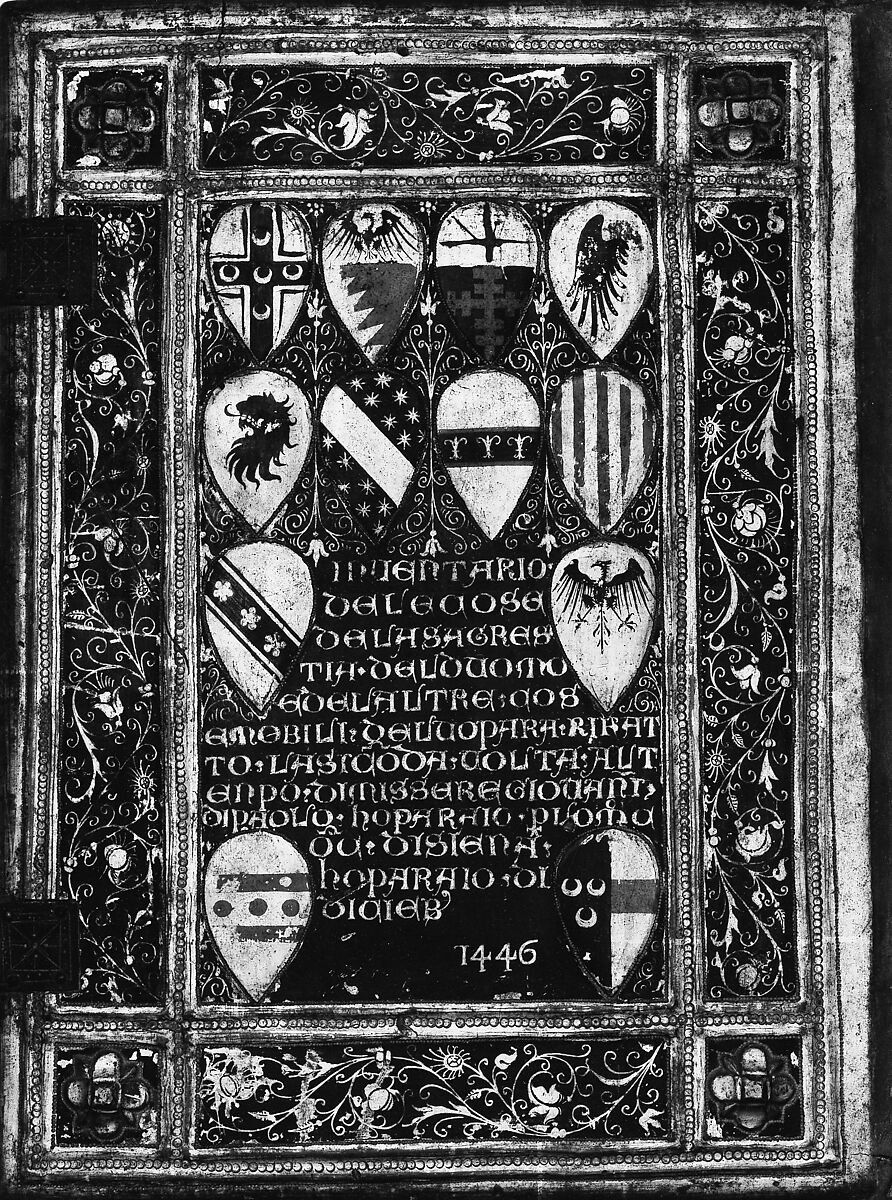 INVENTARIO·
DELECOSE
DELASAGRES
TIA·DELDUOMO
EDELALTRE·COS
EMOBILI·DELUOPARA·RIKAT
TO·LASICODA·VOLTA·ALT
ENPO·DIMISSERE GIOVANI
DIPAOLO·HOPARAIO·
DISIENA·
HOPARAIO·DI
DICIEB
1446